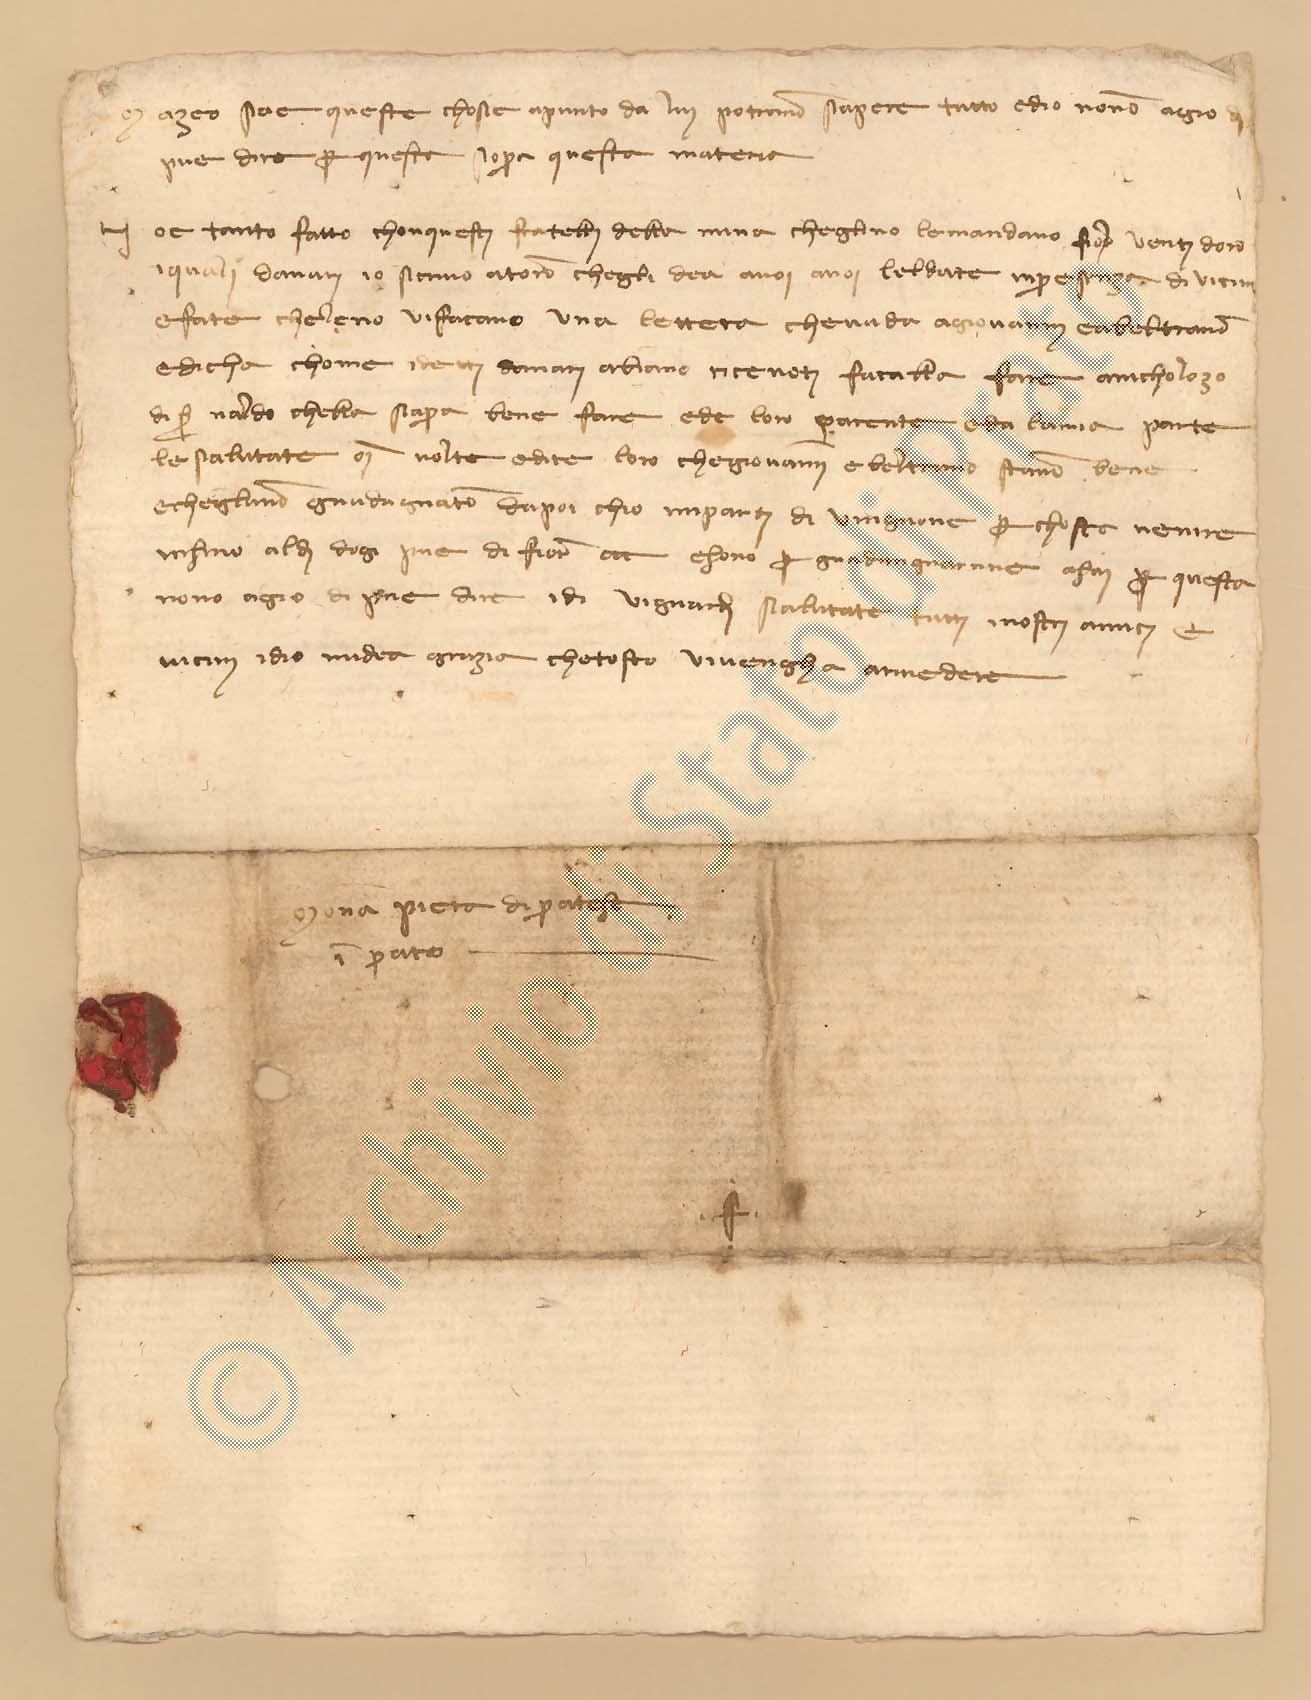 Mazeo sae queste chose apunto da lui potrano sapere tutto ed io nonn agio di
piue dire p questa sopra questa materia
oe tanto fatto chon questi fratelli della nina cheglino le mandano fior venti doro
i quali danari io scrivo a toro chegli dea a voi a voi lelldate in presenza di vicini
e fate chelleno vi facano una lettera che vada a giovanni e a beltramo
e dicha chome i detti danari abiano ricevoti facalla fare a nicholozo
di s naldo chella sapra bene fare ed e loro parente e da la mia parte
le salutate M volte e dite loro che giovanni e beltramo stano bene
e cheglano guadagnato da poi chio mi parti di vingnone p chosta venire
insino al di dogi piue di fior cc e sono p guadangnarune asai p questa
nono agio di piue dire i di vignardi salutate tutti i nostri amici e
vicini idio mi dea grazia che tosto vi vengha a rivedere
Mona pieta di pratese
in prato
© Archivio di Stato di Prato